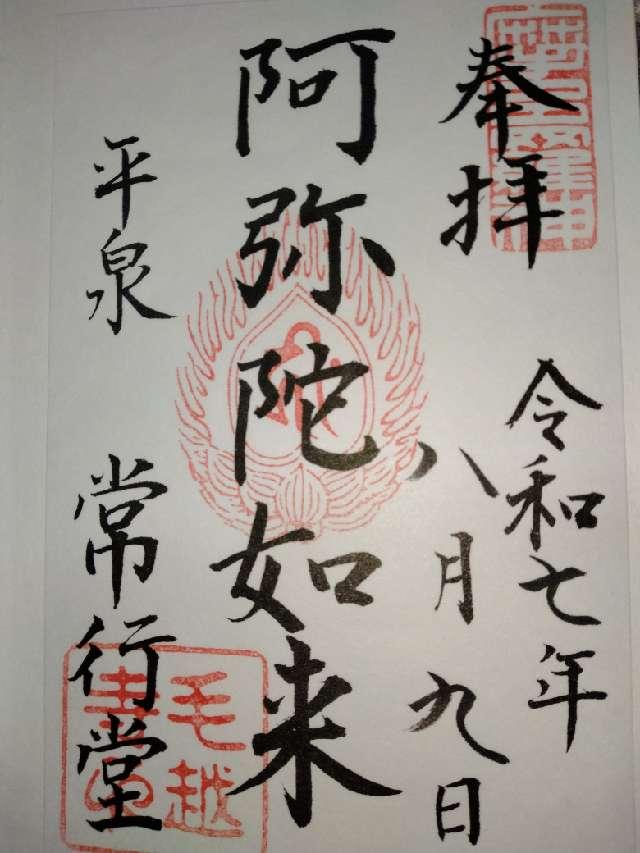 奉拝
令和七年
八月九日
阿弥陀如来
平泉
常行堂
毛越